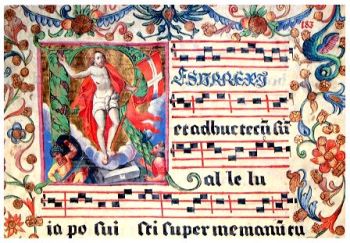 RESURREXI
et adhuc tecū sū
al le lu
ia po sui sti super me manū tu